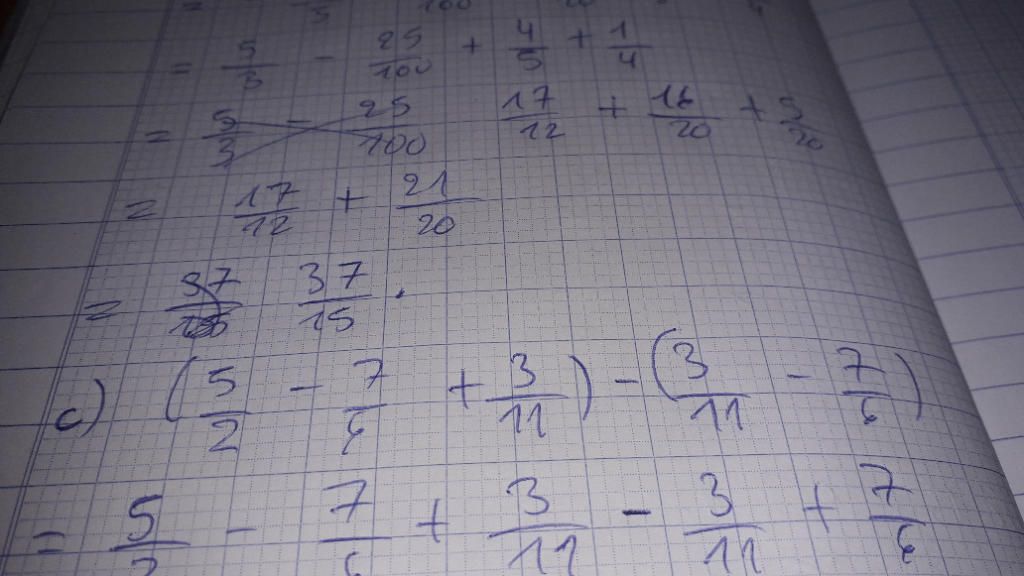 = 5/3 - 25/100 + 4/5 + 1/4
= 17/12 + 16/20 + 5/20
= 17/12 + 21/20
= 37/15 .
c) (5/2 - 7/6 + 3/11) - (3/11 - 7/6)
= 5/2 - 7/6 + 3/11 - 3/11 + 7/6